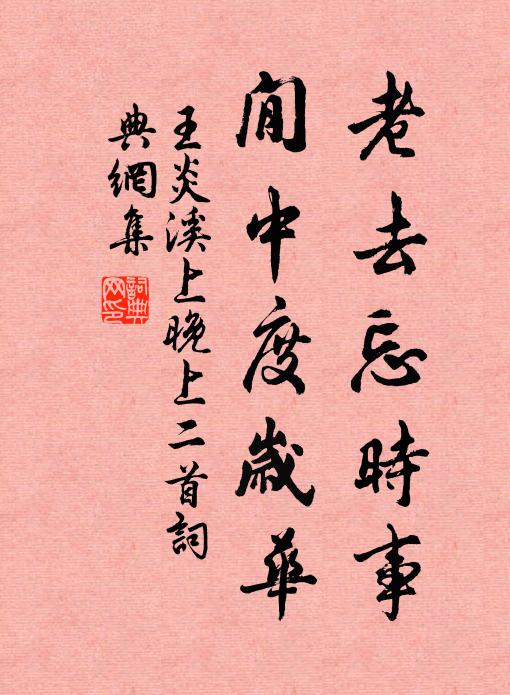 老去忘時事
閒中度歲華
王炎溪上晚上二首詞
典網集
詞典
网印